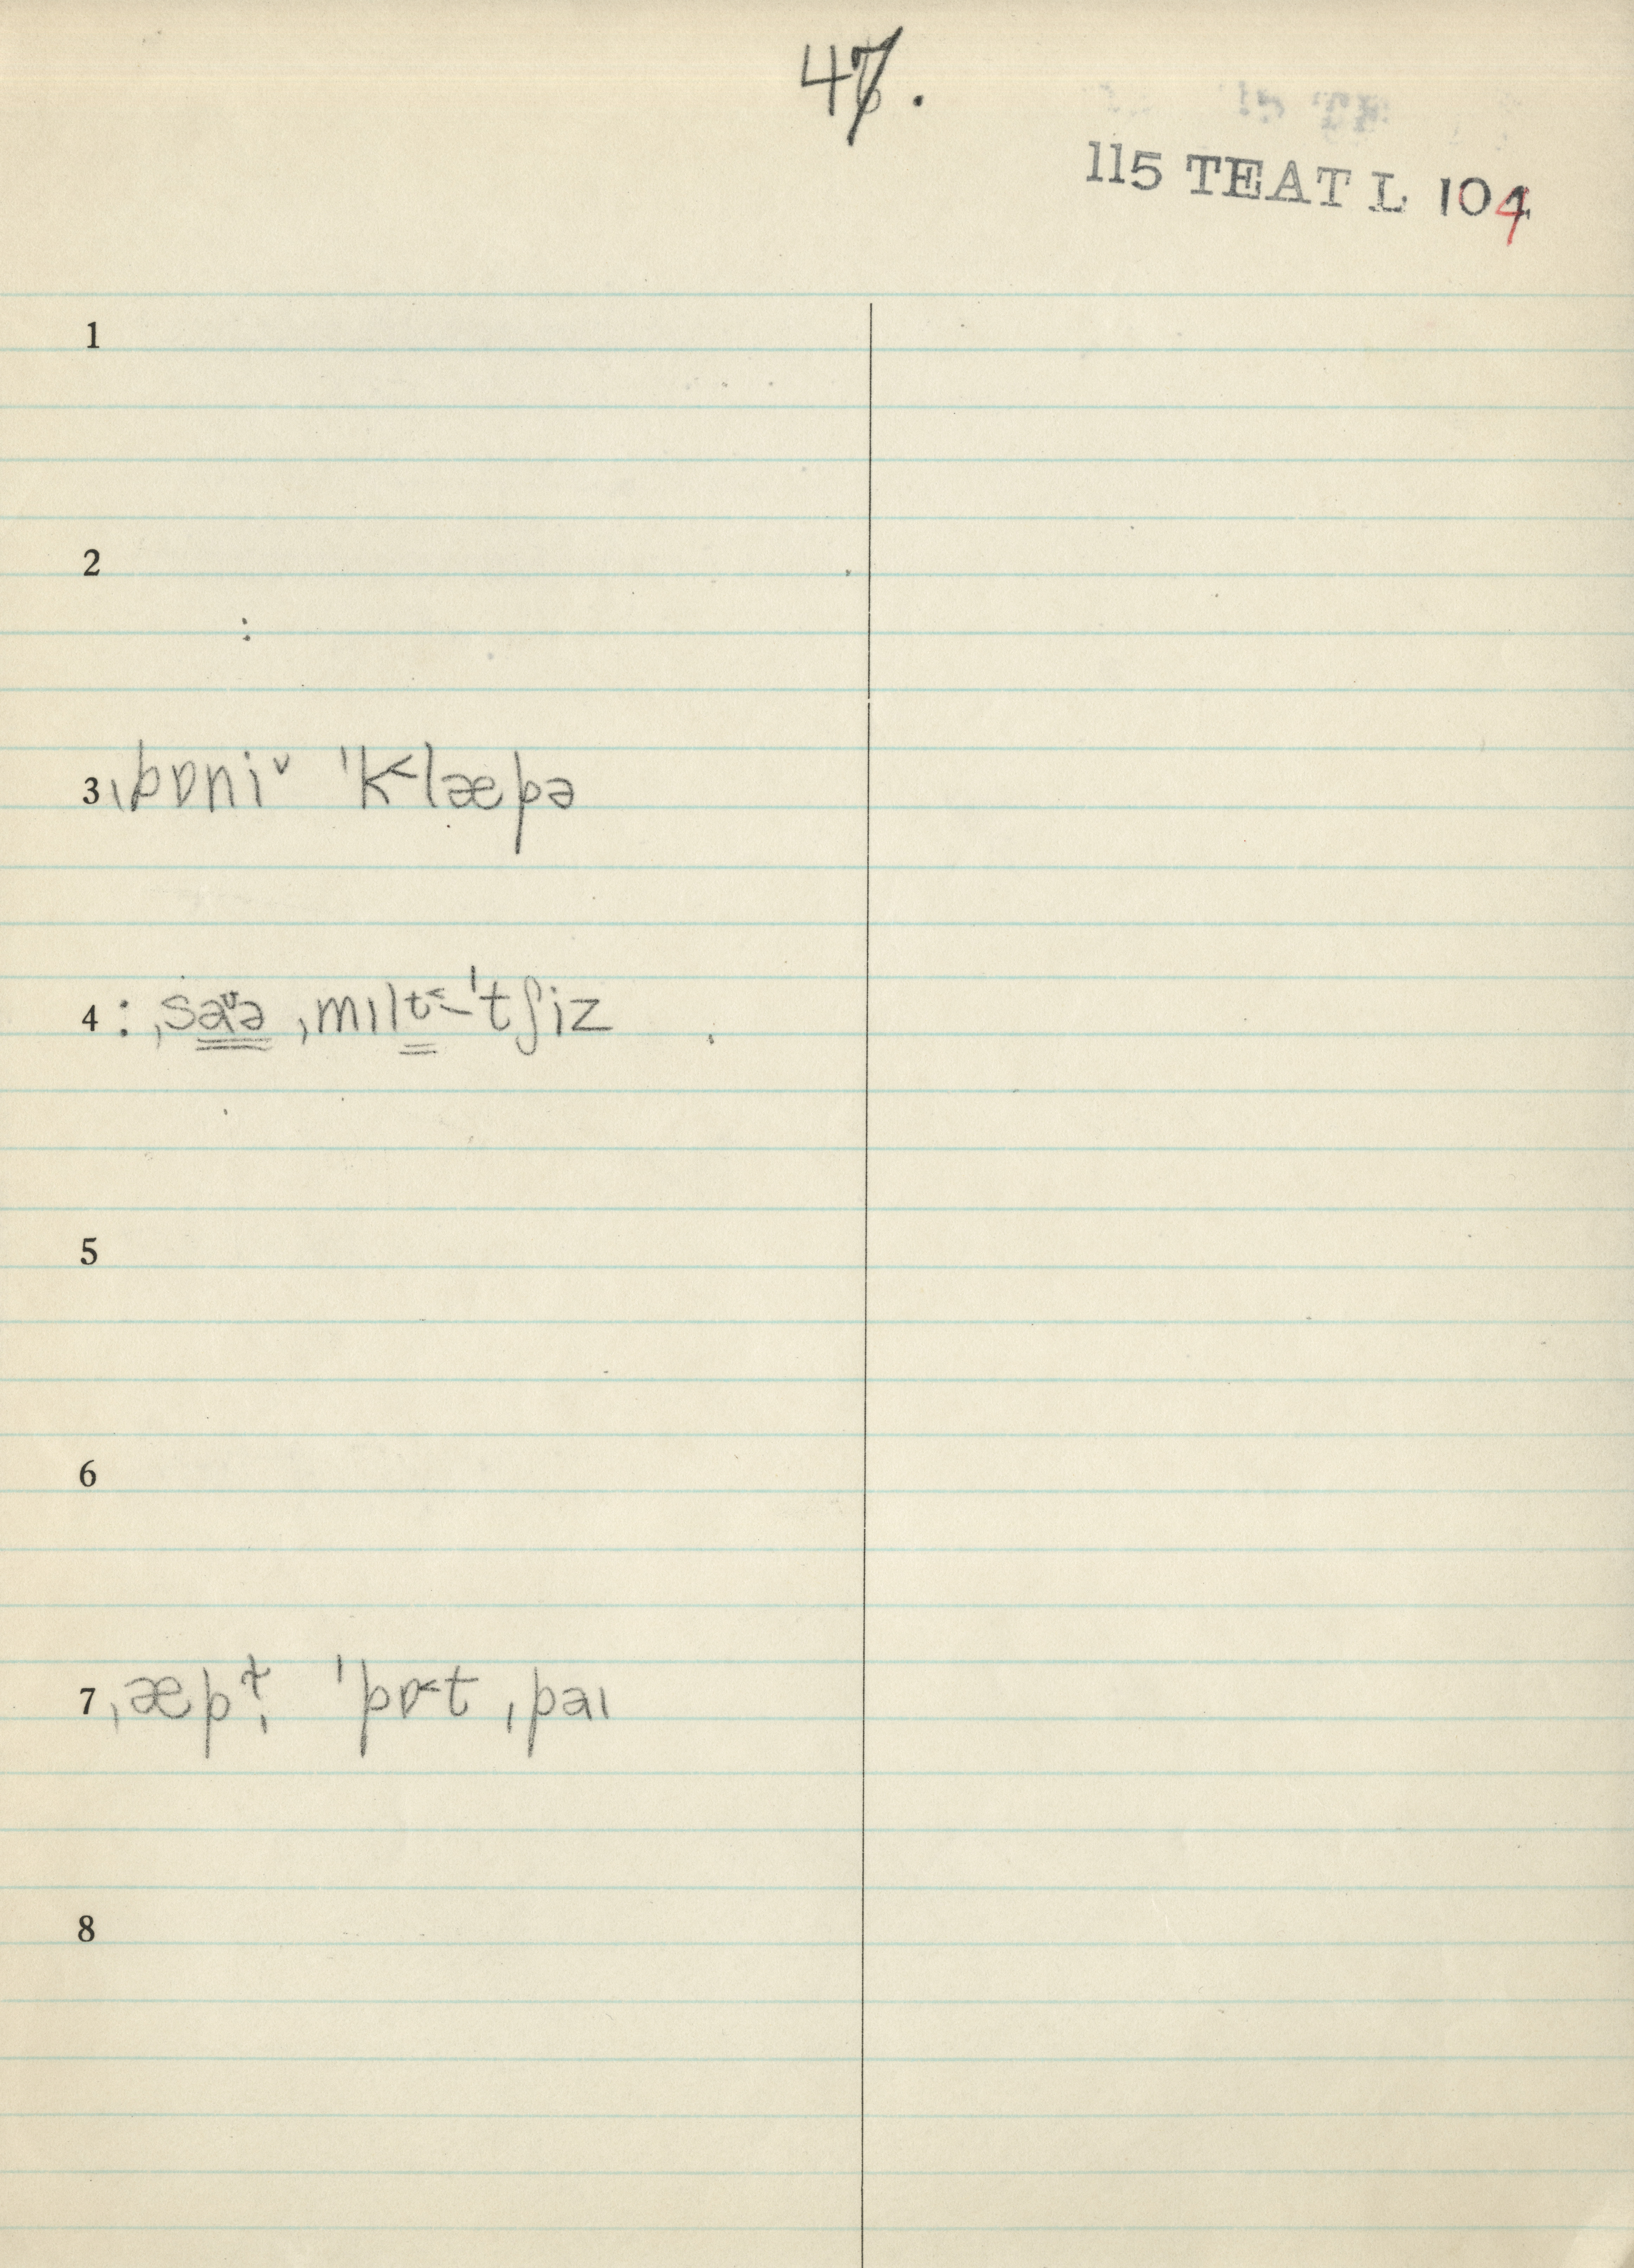 47.
115 TEATL 104
1
2
:
3 ˌpɒniᵛ ˈk˂læpə
4 : ˌsaᶹə ˌmɪlt˂-ˈtʃiz
5
6
7 ˌæpᵗ̬ˌ ˈpɒ˂t ˌpaɪ
8